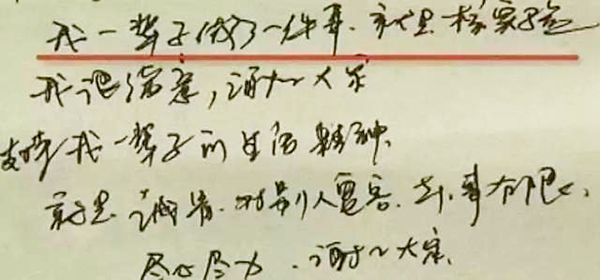 我一辈子做了一件事.就是核实验
我很满意,谢谢大家
支持我一辈子的生活精神.
就是诚实.对别人宽容.对事有恒心.
尽心尽力.谢谢大家.